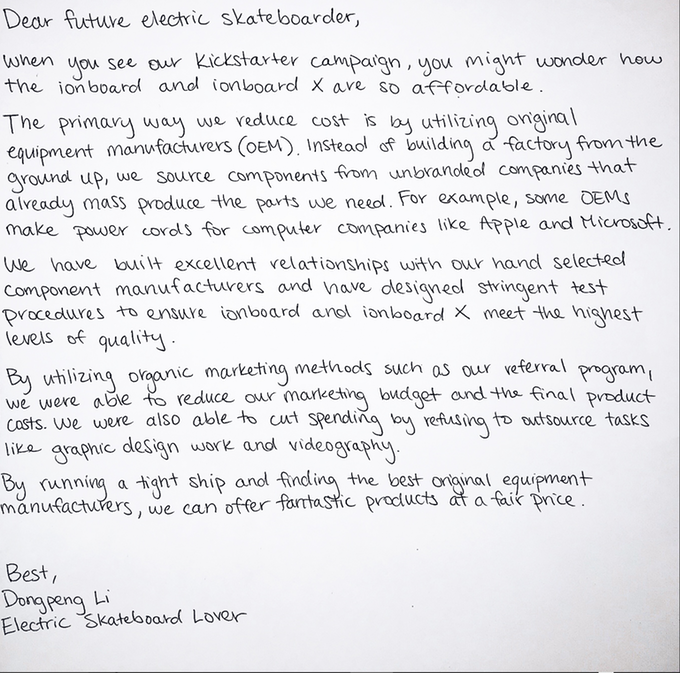 Dear future electric skateboarder,
When you see our Kickstarter campaign, you might wonder how
the ionboard and ionboard X are so affordable.
The primary way we reduce cost is by utilizing original
equipment manufacturers (OEM). Instead of building a factory from the
ground up, we source components from unbranded companies that
already mass produce the parts we need. For example, some OEMs
make power cords for computer companies like Apple and Microsoft.
We have built excellent relationships with our hand selected
component manufacturers and have designed stringent test
procedures to ensure ionboard and ionboard X meet the highest
levels of quality.
By utilizing organic marketing methods such as our referral program,
we were able to reduce our marketing budget and the final product
costs. We were also able to cut spending by refusing to outsource tasks
like graphic design work and videography.
By running a tight ship and finding the best original equipment
manufacturers, we can offer fantastic products at a fair price.
Best,
Dongpeng Li
Electric Skateboard Lover